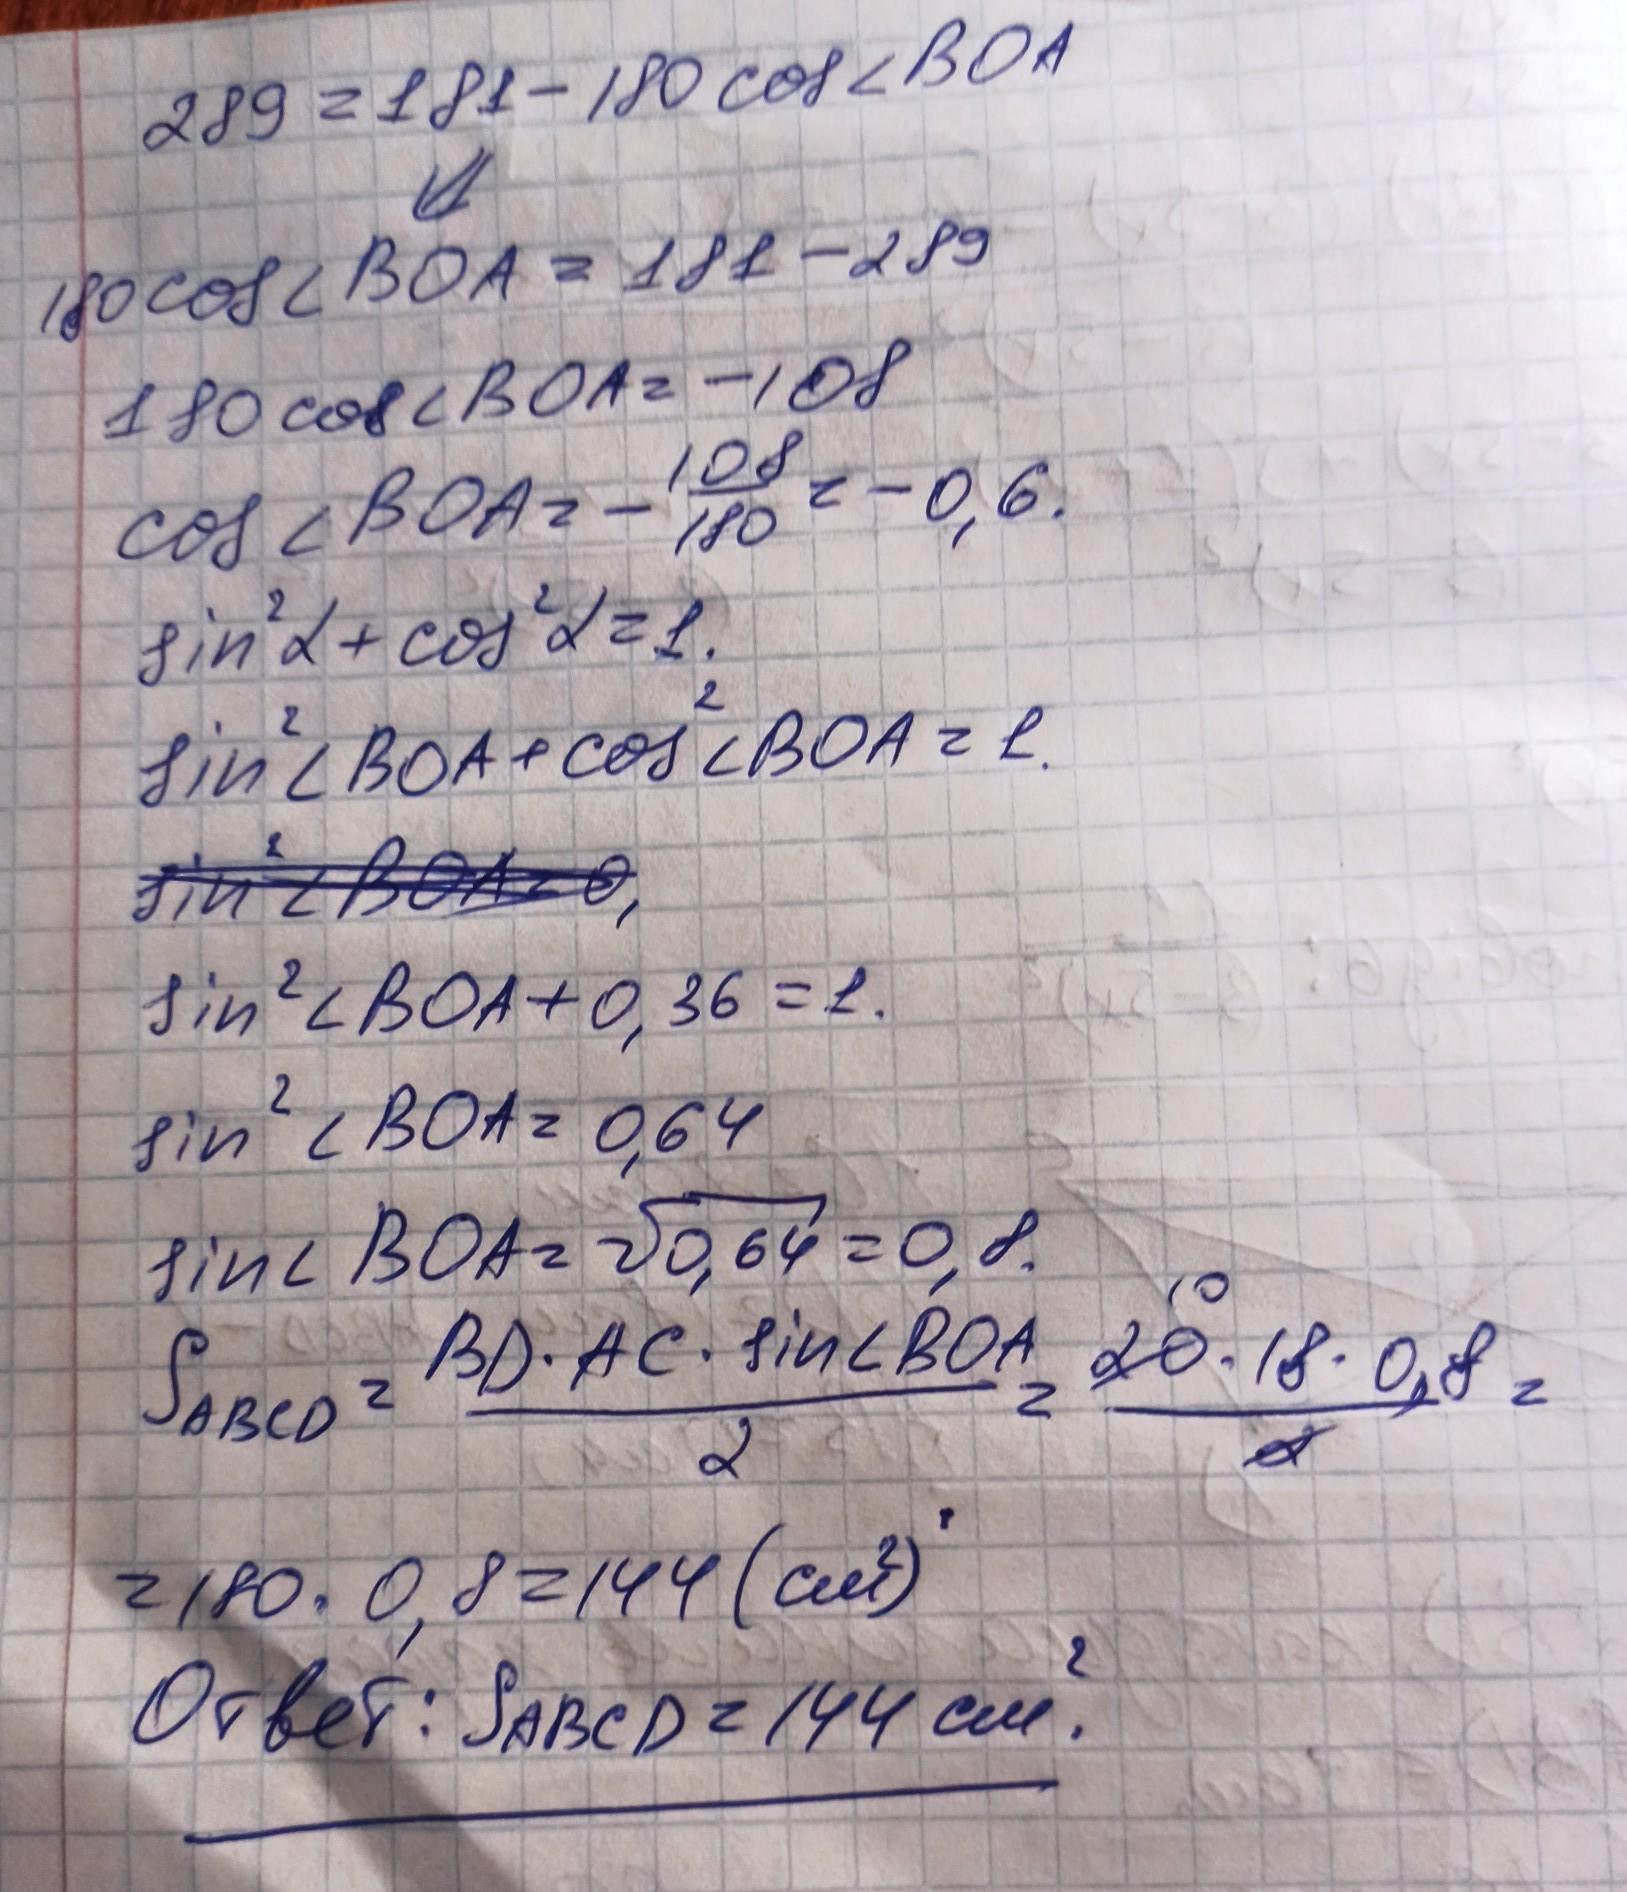 289 = 181 - 180 cos<BOA
180cos<BOA = 181 - 289
180cos<BOA = -108
cos<BOA = -108/180 = -0,6.
sin²α + cos²α = 1.
sin²<BOA + cos²<BOA = 1.
sin²<BOA = 0,
sin²<BOA + 0,36 = 1.
sin²<BOA = 0,64
sin<BOA = √0,64 = 0,8.
S_ABCD = BD·AC·sin<BOA/2 = 20·18·0,8/2 = 10
= 180·0,8 = 144 (см²).
Ответ: S_ABCD = 144 см².